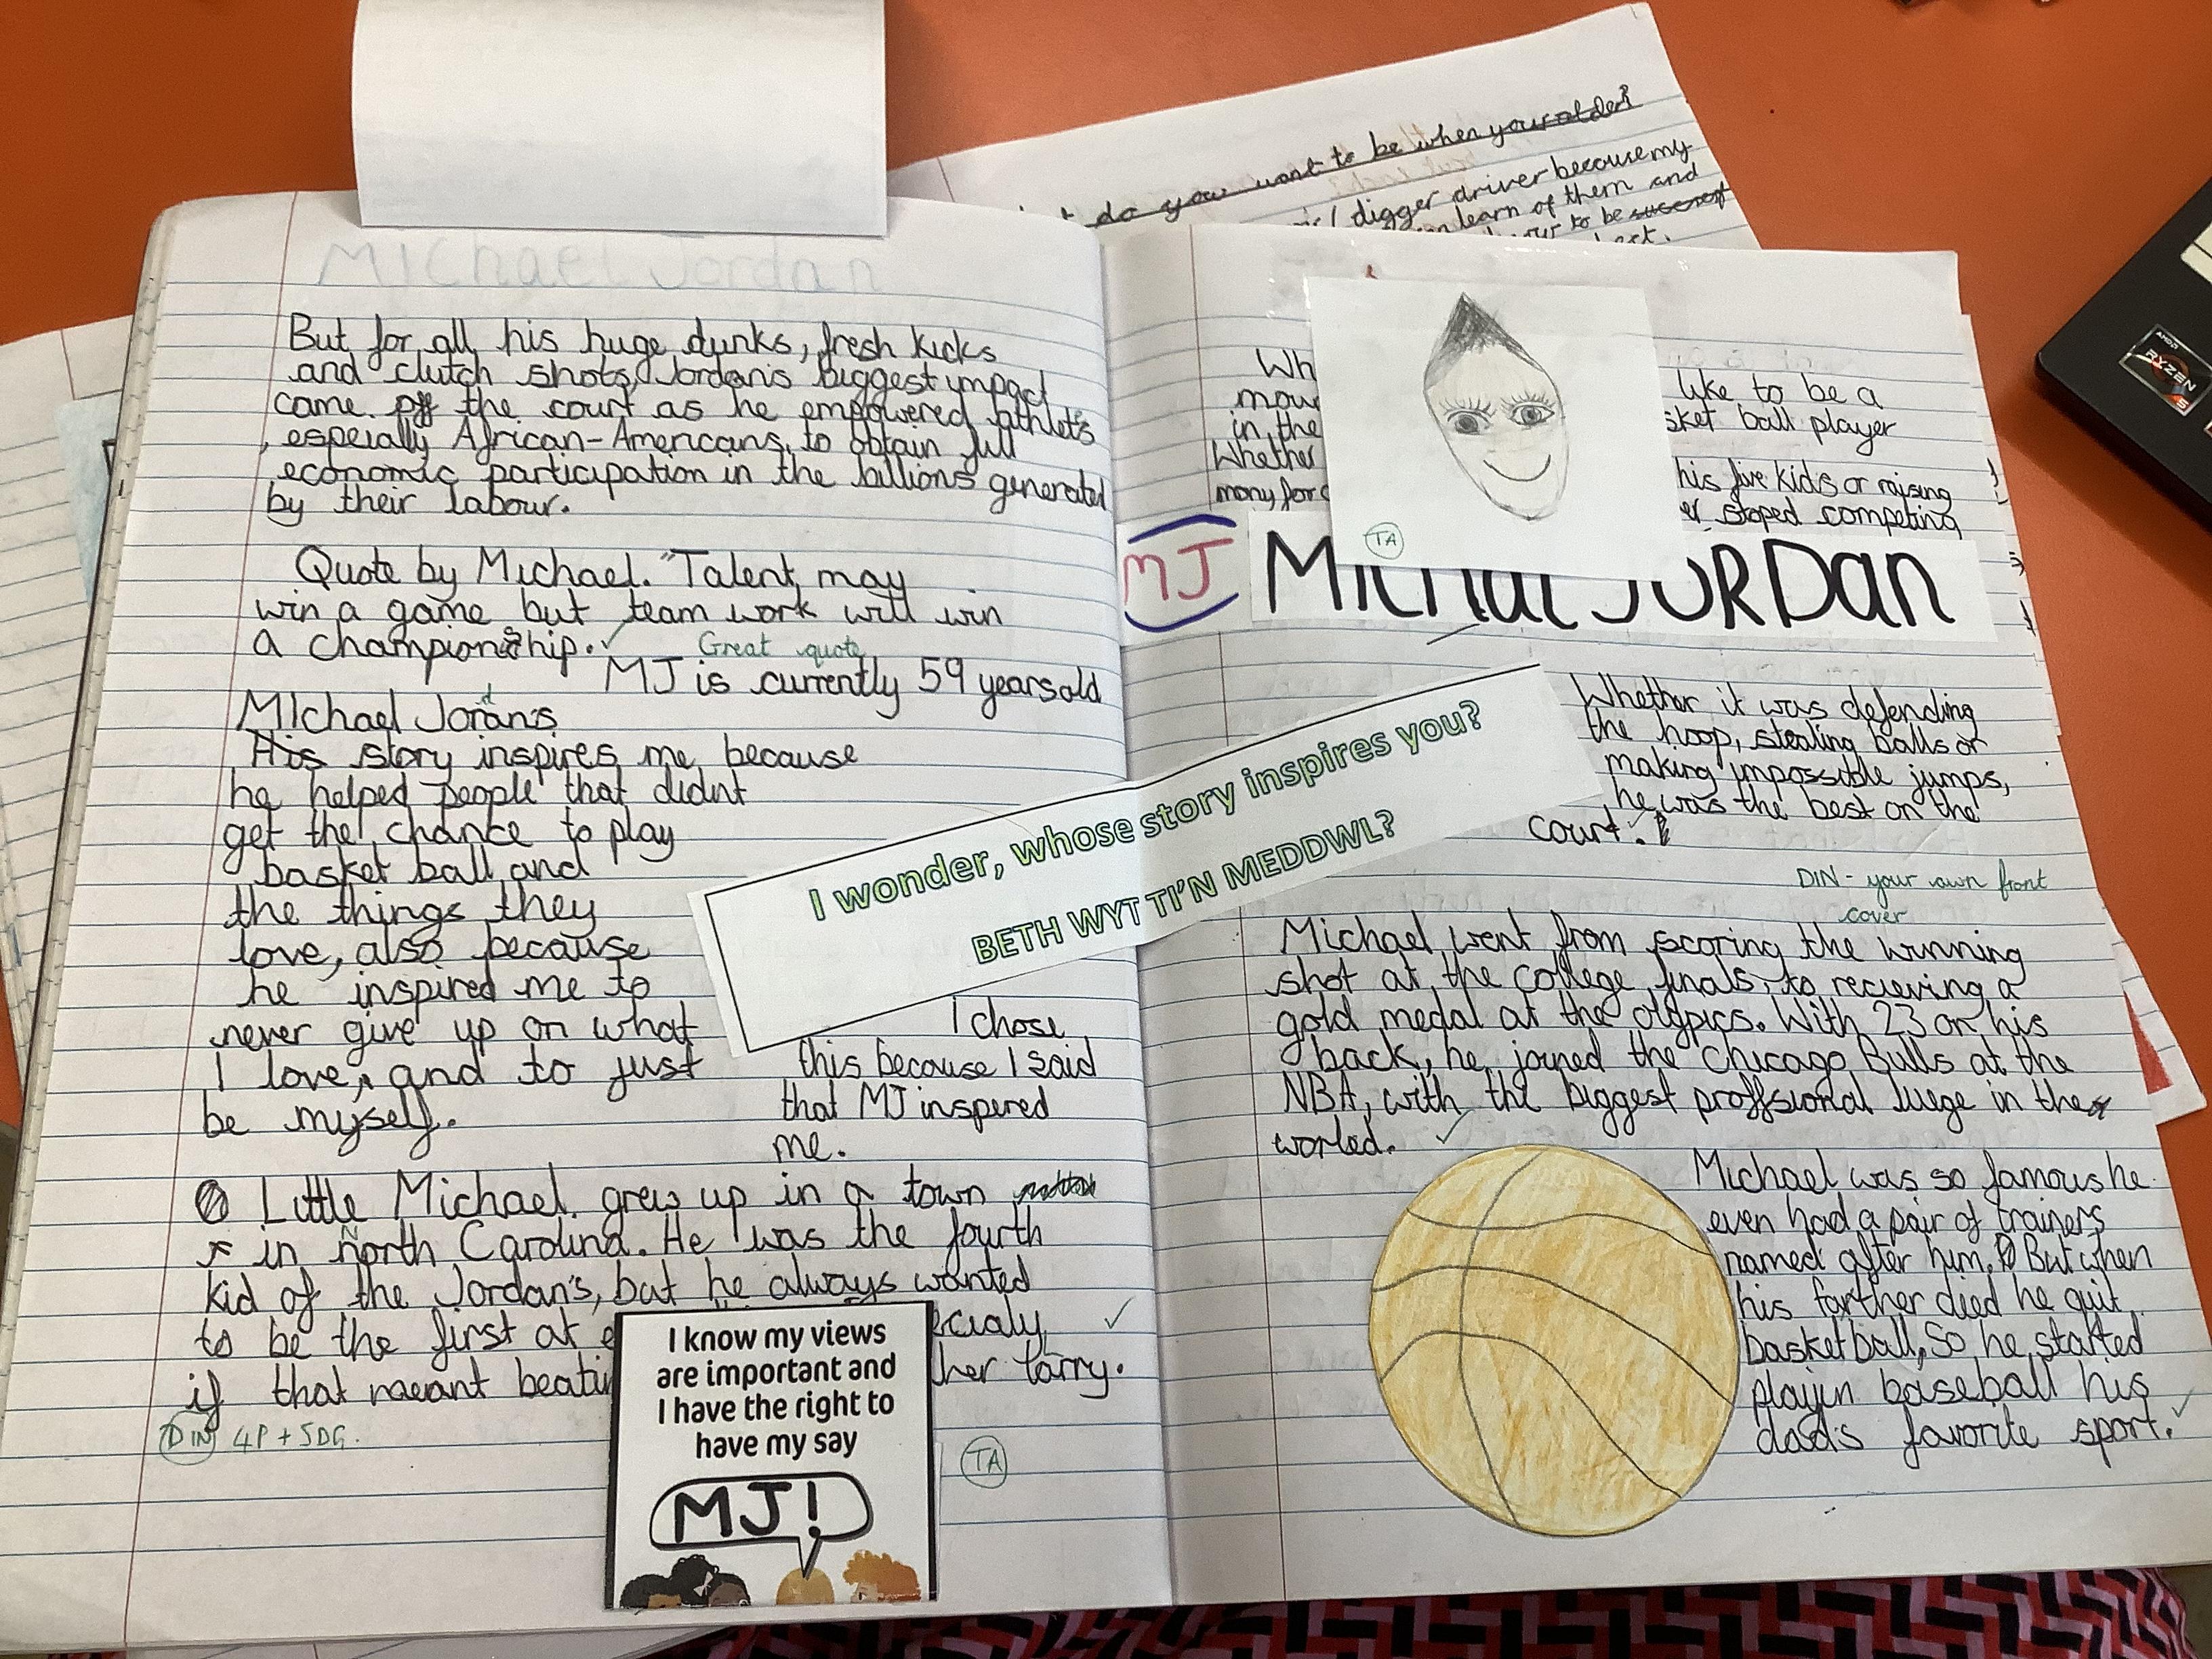 Michael Jordan
But for all his huge dunks, fresh kicks
and clutch shots, Jordan's biggest impact
came off the court as he empowered athlet's
, especially African-Americans, to obtain full
economic participation in the billions generated
by their labour.
Quote by Michael. "Talent may
win a game but team work will win
a championship.
Great quote
MJ is currently 59 years old
d
MIchael Joran's
His story inspires me because
he helped people that didnt
get the chance to play
basket ball and
the things they
love, also because
he inspired me to
never give up on what
I love, and to just
be myself.
I chose
this because I said
that MJ inspired
me.
Little Michael grew up in a town
in north Carolina. He was the fourth
kid of the Jordan's, but he always wanted
to be the first at e
ecialy
if that meant beatin
ther larry.
DIN 4P + SDG.
I know my views
are important and
I have the right to
have my say
MJ!
TA
I wonder, whose story inspires you?
BETH WYT TI'N MEDDWL?
do you want to be when your older?
/ digger driver because my
learn of them and
to be
Wh
like to be a
mou
sket ball player
in the
Whether
his five kids or raising
mony for c
er stoped competing
TA
MJ
MIchal JORDan
Whether it was defending
the hoop, stealing balls or
making impossible jumps,
he was the best on the
court.
DIN - your own front
cover
Michael went from scoring the winning
shot at the college finals, to recieving a
gold medal at the olypics. With 23 on his
back, he joined the Chicago Bulls at the
NBA, with the biggest proffsional luege in the
worled.
Michael was so famous he
even had a pair of trainers
named after him. But when
his farther died he quit
basketball, So he started
playin baseball his
dad's favorite sport.
AMD
RYZEN
5